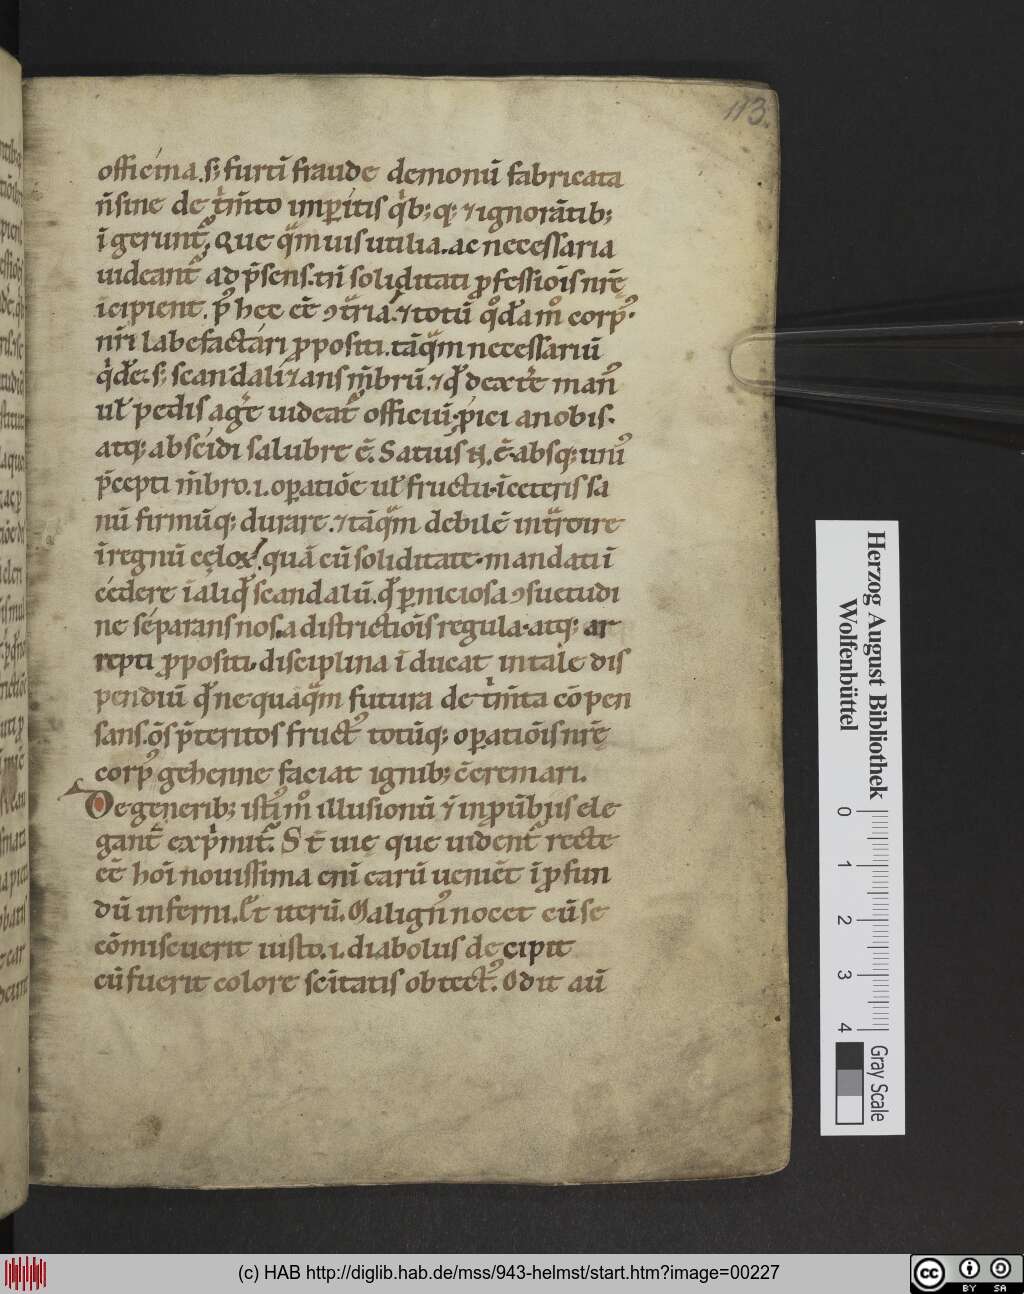 113.
officina. s; furtī fraude demonū fabricata
ñsine detrim̄to imp̲itis qͥb;q; ⁊ ignorātib;
īgerunt᷑. Que qͣmuis utilia. ac necessaria
uideant᷑ ad p̄sens. tn̄ soliditati ꝓfessiois nrē
icipient. pꝰ hec eē ꝯtͣria. ⁊ totū qͦdāmͦ corpꝰ
nri labefactari ꝓpositi. tāqͣm necessariū
scandaliȥans m̄brū. ⁊ qď dextre manꝰ
uł pedis agͤe uideat᷑ officiū. p̄ici a nobis.
atq; abscidi salubre ē. Satius .N. ē absq; unīꝰ
p̄cepti m̄bro .i. op̲atiōe uł fructu. īceteris sa
nū firmūq; durare. ⁊ tāqͣm debilē intͣroire
īregnū cęloꝝ. quā cū soliditate mandati ī
cedere ī aliqď scandalū. qď p̲niciosa ꝯsuetudi
ne séparans nos. a districtiōis regula. atq; ar
repti ꝓpositi. disciplina īducat in tale dis
pendiū qď nequāqͣm futura detrim̄ta cōpen
sans. ōs p̄teritos fructꝰ totūq; op̲atiōis nrē
corpꝰ gehenne faciat ignib; c̄cremari.
De generib; istiꝰmͦ illusionū ī ꝓūbiis ele
gant᷑ exp̄mit᷑. St̄ uię que uident᷑ recte
eē hoī nouissima enī earū ueniēt ī ꝓfun
dū inferni. Et iterū. Malignꝰ nocet cū se
cōmiscuerit iusto .i. diabolus decipit
cū fuerit colore scītatis obtectꝰ. Odit aū
Herzog August Bibliothek
Wolfenbüttel
0 1 2 3 4
Gray Scale
(c) HAB http://diglib.hab.de/mss/943-helmst/start.htm?image=00227
cc BY SA